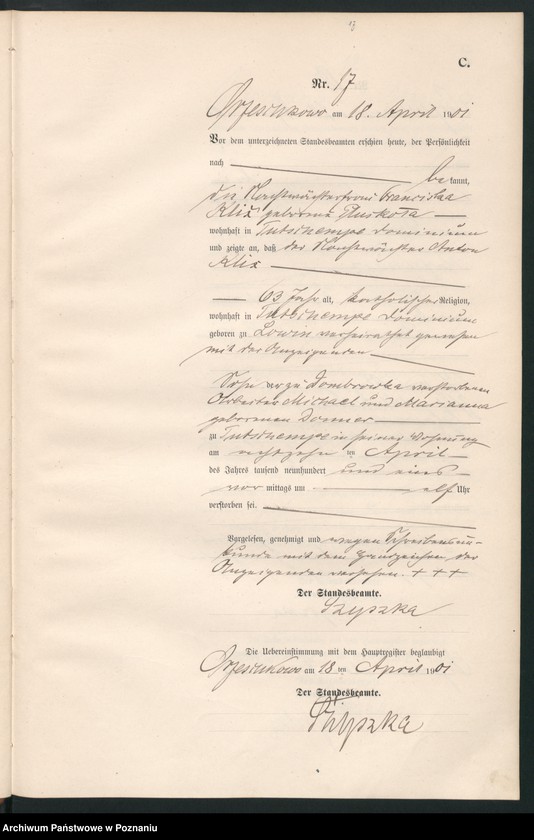 13
C.
Nr. 17
am 18. April 1901
Vor dem unterzeichneten Standesbeamten erschien heute, der Persönlichkeit
nach be kannt,
die Nachtwächterfrau Franciska
Klix geborene
wohnhaft in Tutschempe Dominium
und zeigte an, daß der Nachtwächter Anton
Klix
63 Jahr alt, katholischer Religion,
wohnhaft in Tutschempe Dominium
geboren zu Lowin verheirathet gewesen
mit der Anzeigenden
Sohn der zu Dombrowka verstorbenen
Arbeiter Michael und Marianna
geborenen Donner
zu Tutschempe in seiner Wohnung
am achtzehn ten April
des Jahres tausend neunhundert und eins
vor mittags um elf Uhr
verstorben sei.
Vorgelesen, genehmigt und wegen Schreibensun-
kunde mit dem Handzeichen der
Anzeigenden versehen. + + +
Der Standesbeamte.
Szyszka
Die Uebereinstimmung mit dem Hauptregister beglaubigt
am 18 ten April 1901
Der Standesbeamte.
Szyszka
Archiwum Państwowe w Poznaniu